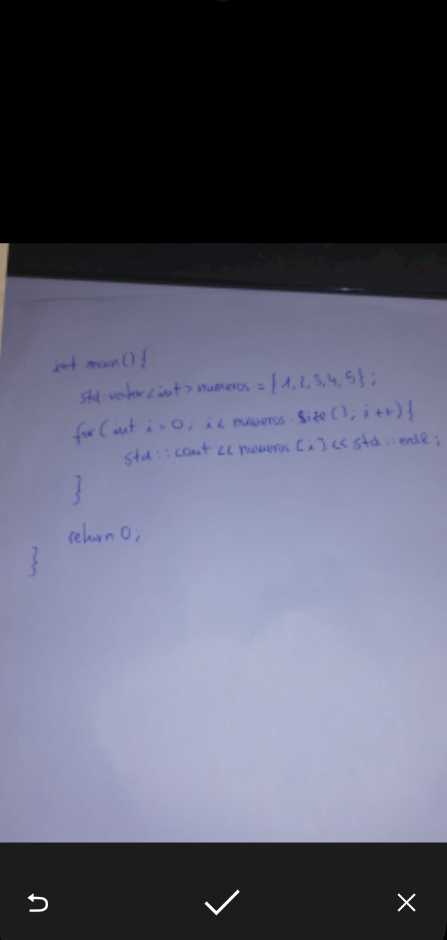 int main(){
std::vector<int> numeros = {1,2,3,4,5};
for(int i=0; i< numeros.size(); i++){
std::cout << numeros[i] << std::endl;
}
return 0;
}